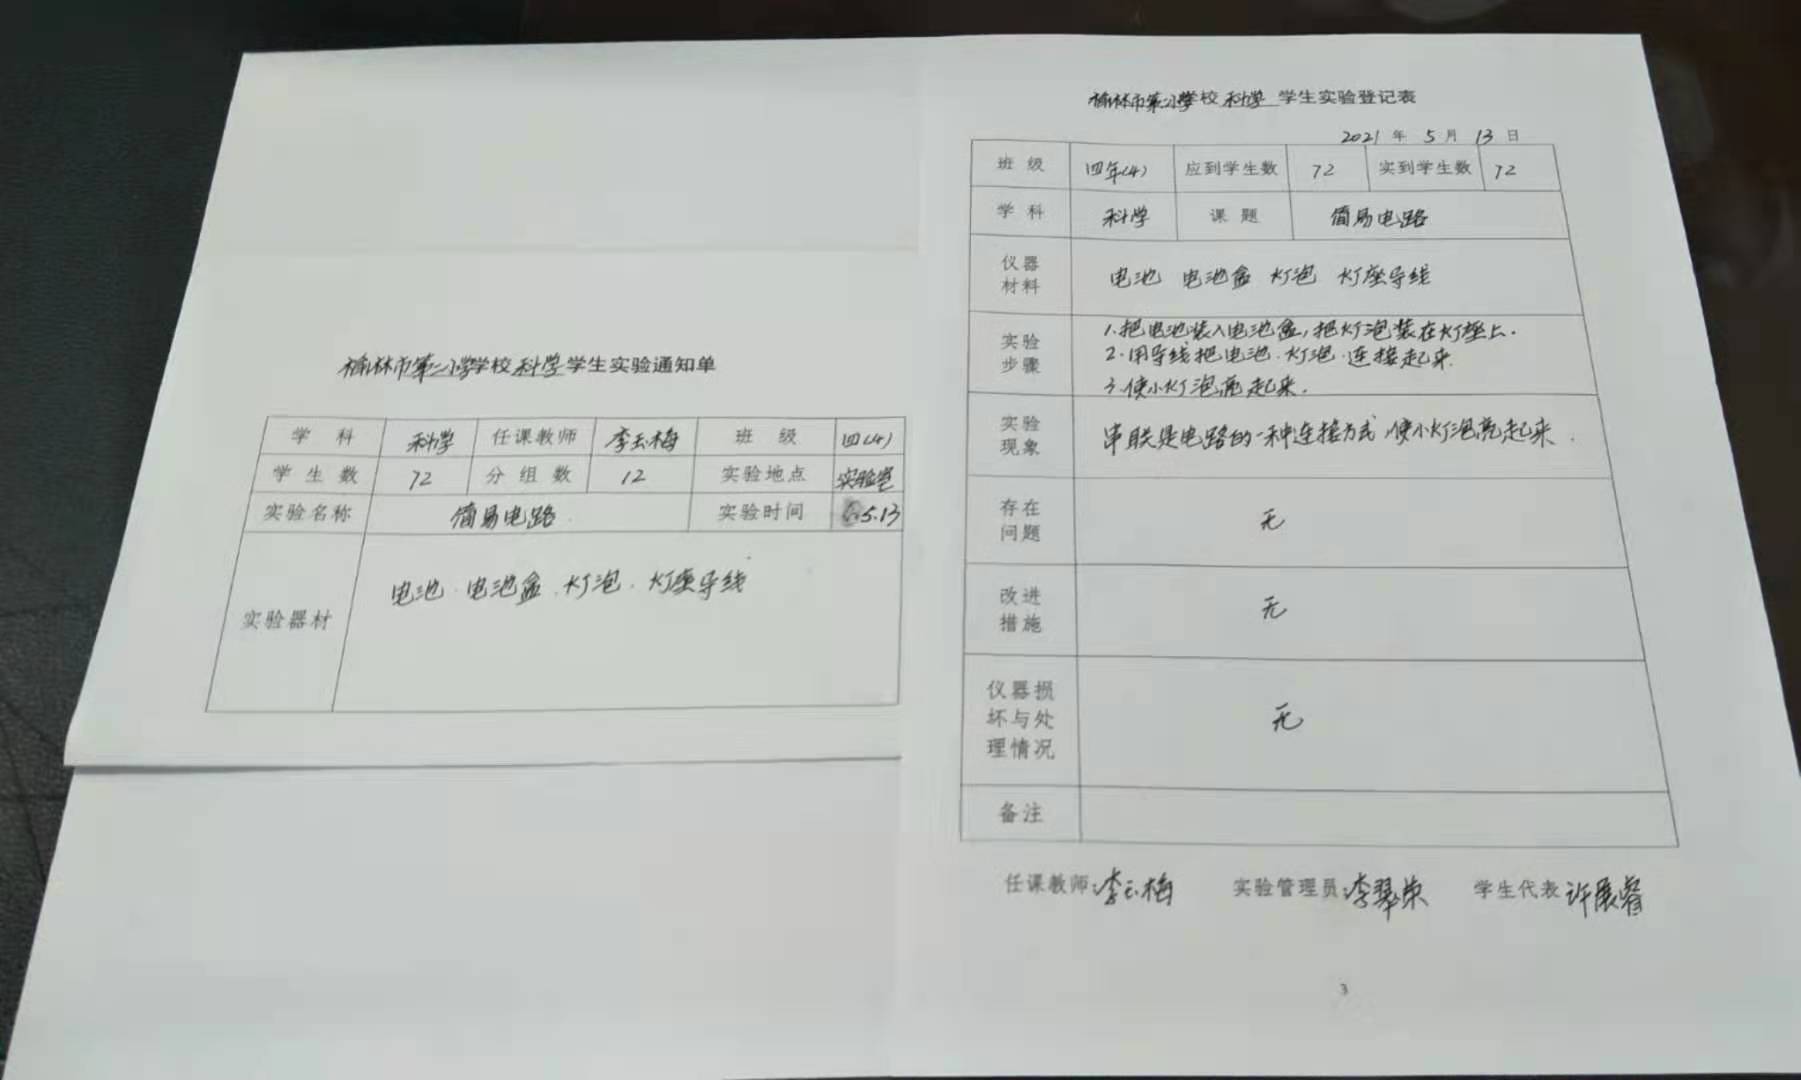 榆林市第二小学学校科学学生实验通知单
学 科 科学 任课教师 李玉梅 班 级 四(4)
学 生 数 72 分 组 数 12 实验地点 实验室
实验名称 简易电路 实验时间 5.13
实验器材 电池 电池盒 灯泡 灯座导线
榆林市第二小学学校 科学 学生实验登记表
2021 年 5 月 13 日
班 级 四年(4) 应到学生数 72 实到学生数 72
学 科 科学 课 题 简易电路
仪器
材料
电池 电池盒 灯泡 灯座导线
实验
步骤
1.把电池装入电池盒,把灯泡装在灯座上.
2.用导线把电池.灯泡.连接起来.
3.使小灯泡亮起来.
实验
现象
串联是电路的一种连接方式,使小灯泡亮起来.
存在
问题
无
改进
措施
无
仪器损
坏与处
理情况
无
备注
任课教师:李玉梅 实验管理员:李翠荣 学生代表:许展睿
3